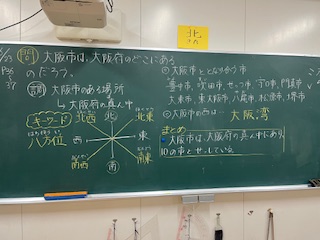 北
問 大阪市は、大阪府のどこにある
のだろう。
P36
37
調 大阪市のある場所
→大阪府の真ん中
キーワード
八方位
北西 北 北東
西 東
南西 南 南東
大阪市ととなり合う市
豊中市、吹田市、せっつ市、守口市、門真市
大東市、東大阪市、八尾市、松原市、堺市
大阪市の西は… 大阪湾
まとめ
大阪市は、大阪府の真ん中にあり、
10の市とせっしている。